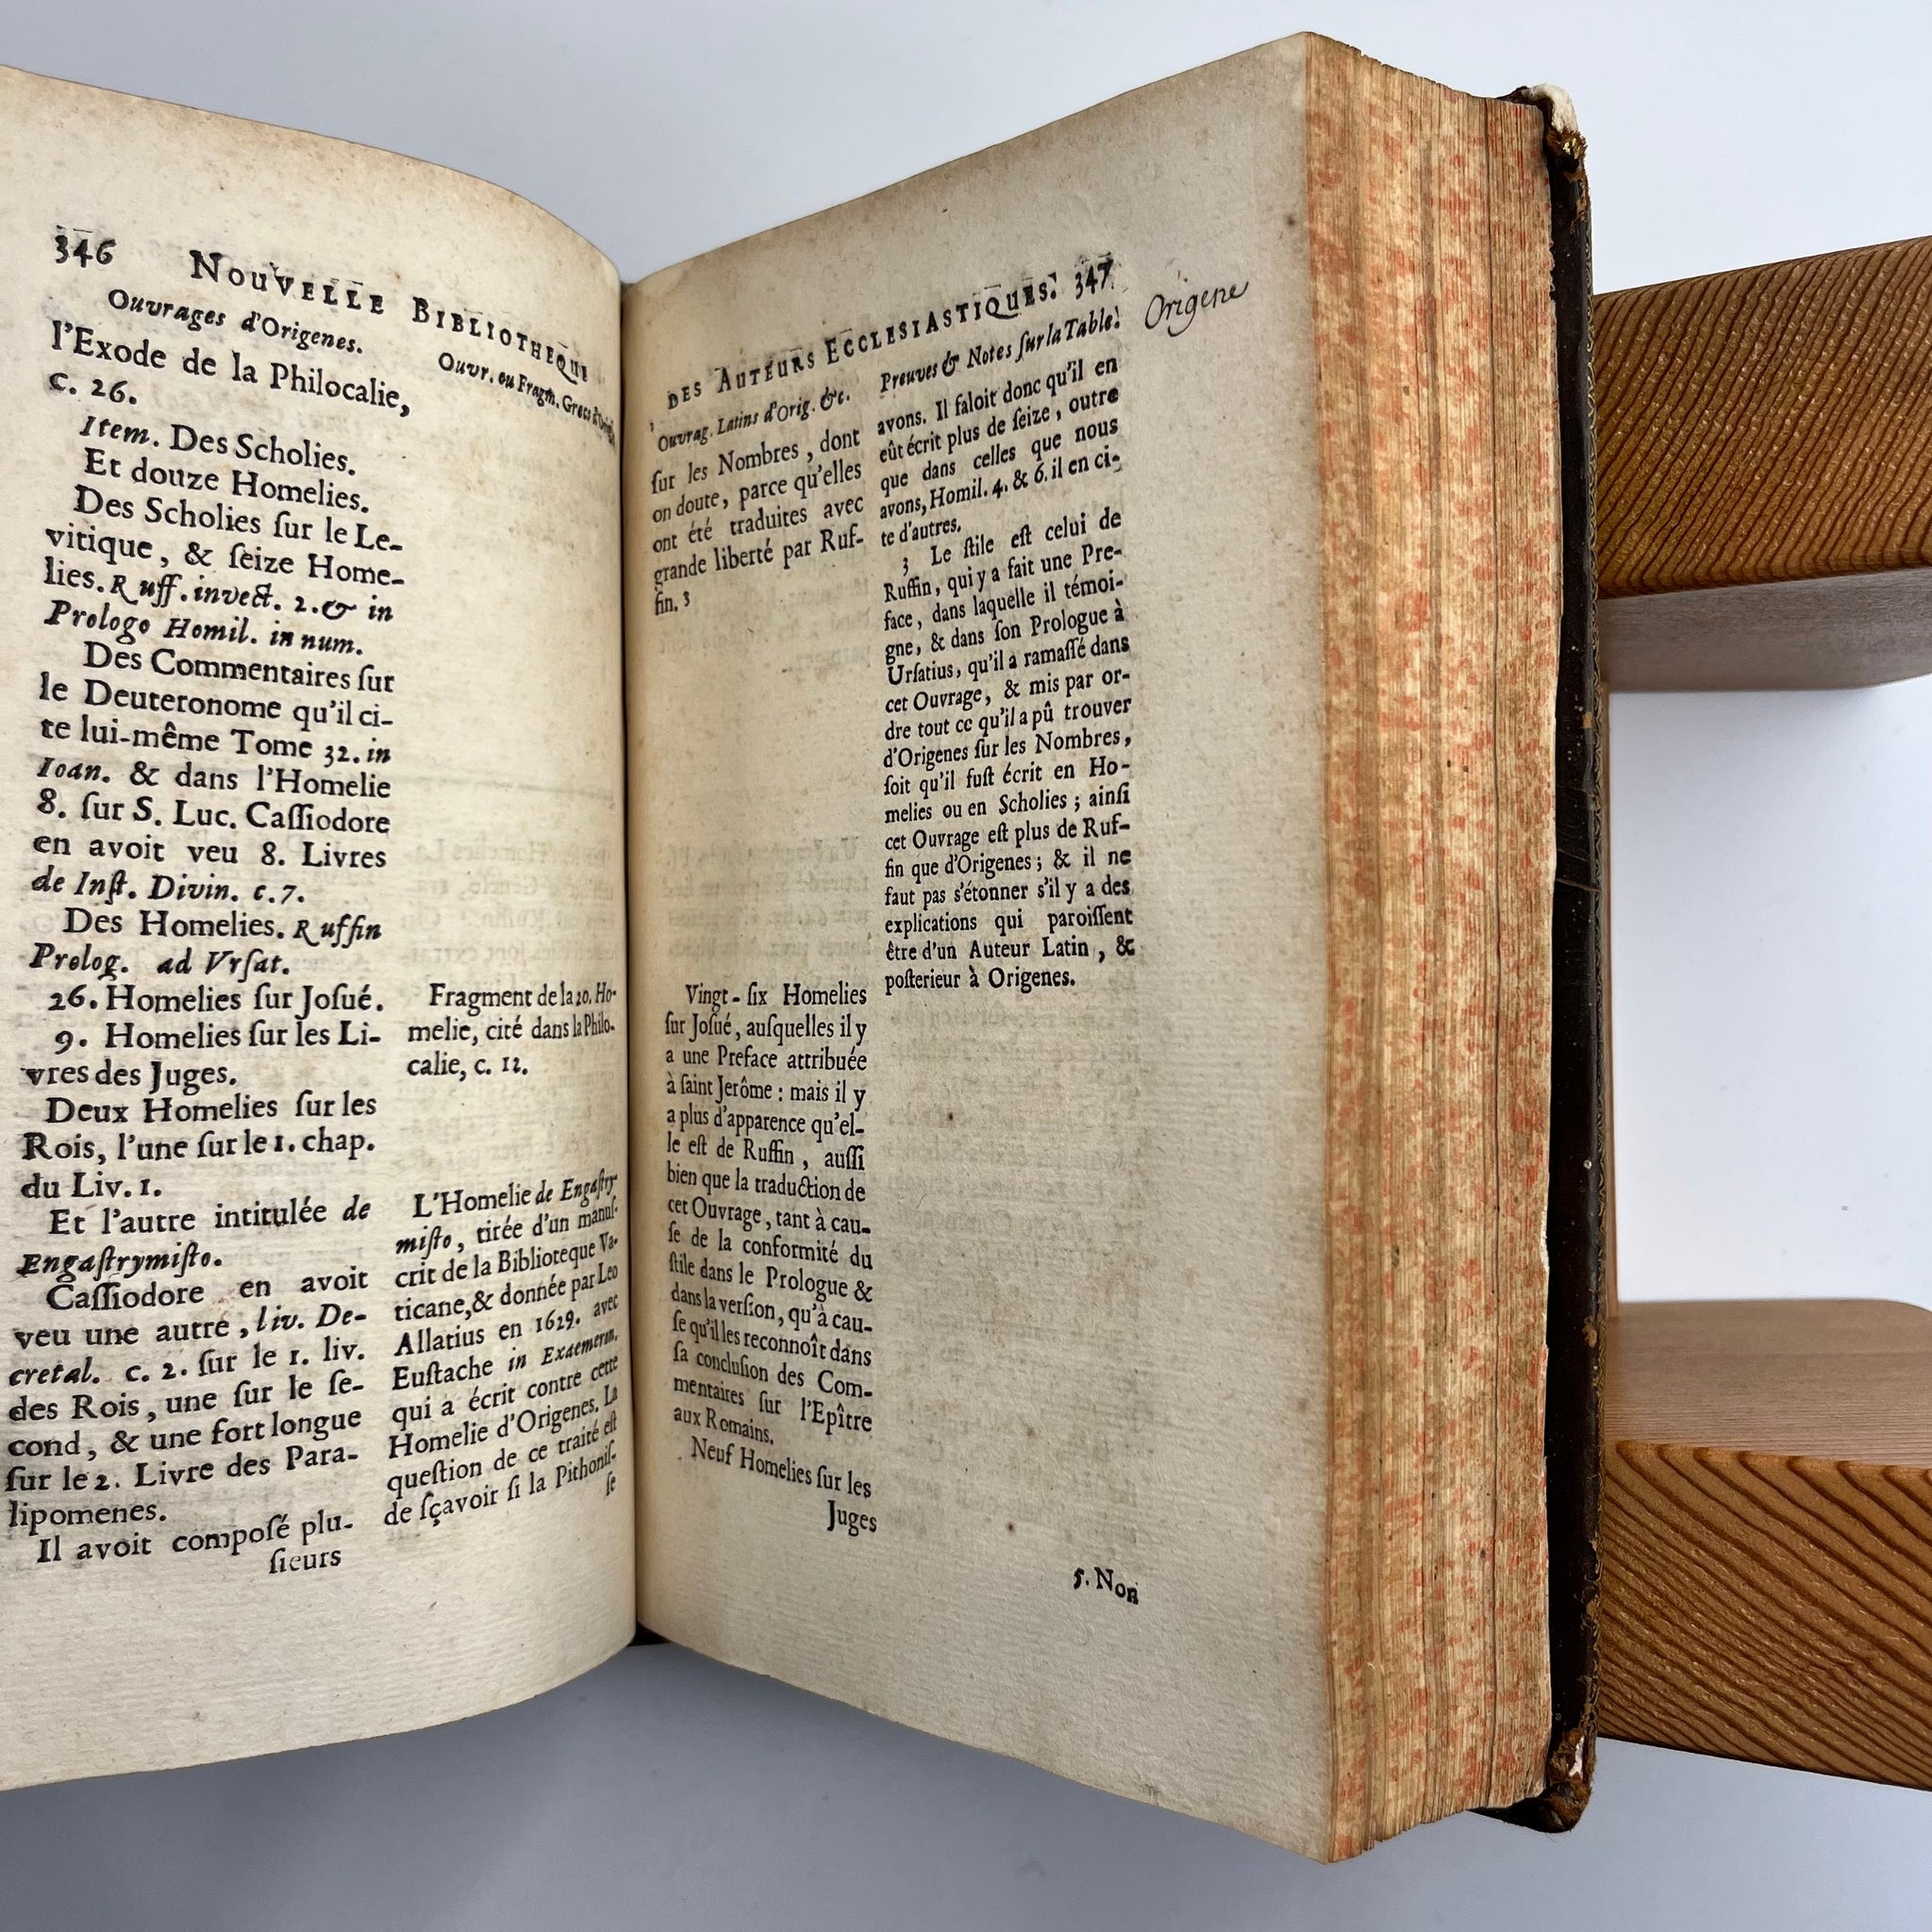 346 NOUVELLE BIBLIOTHEQUE
Ouvrages d'Origenes.
l'Exode de la Philocalie,
c. 26.
Item. Des Scholies.
Et douze Homelies.
Des Scholies ſur le Le-
vitique, & ſeize Home-
lies. Ruff. invect. 2. & in
Prologo Homil. in num.
Des Commentaires ſur
le Deuteronome qu'il ci-
te lui-même Tome 32. in
Ioan. & dans l'Homelie
8. ſur S. Luc. Caſſiodore
en avoit veu 8. Livres
de Inſt. Divin. c. 7.
Des Homelies. Ruffin
Prolog. ad Vrſat.
26. Homelies ſur Joſué.
9. Homelies ſur les Li-
vres des Juges.
Deux Homelies ſur les
Rois, l'une ſur le 1. chap.
du Liv. 1.
Et l'autre intitulée de
Engaſtrymiſto.
Caſſiodore en avoit
veu une autre, liv. De-
cretal. c. 2. ſur le 1. liv.
des Rois, une ſur le ſe-
cond, & une fort longue
ſur le 2. Livre des Para-
lipomenes.
Il avoit compoſé plu-
ſieurs
Ouvr. ou Fragm. Grecs
Fragment de la 20. Ho-
melie, cité dans la Philo-
calie, c. 12.
L'Homelie de Engaſtry
miſto, tirée d'un manuſ-
crit de la Biblioteque Va-
ticane, & donnée par Leo
Allatius en 1629. avec
Euſtache in Exaemerm.
qui a écrit contre cette
Homelie d'Origenes. La
queſtion de ce traité eſt
de ſçavoir ſi la Pithoniſ-
ſe
DES AUTEURS ECCLESIASTIQUES. 347
Ouvrag. Latins d'Orig. &c.
ſur les Nombres, dont
on doute, parce qu'elles
ont été traduites avec
grande liberté par Ruf-
fin. 3
Vingt-ſix Homelies
ſur Joſué, auſquelles il y
a une Preface attribuée
à ſaint Jerôme : mais il y
a plus d'apparence qu'el-
le eſt de Ruffin, auſſi
bien que la traduction de
cet Ouvrage, tant à cau-
ſe de la conformité du
ſtile dans le Prologue &
dans la verſion, qu'à cau-
ſe qu'il les reconnoît dans
ſa concluſion des Com-
mentaires ſur l'Epître
aux Romains.
Neuf Homelies ſur les
Juges
Preuves & Notes ſur la Table.
avons. Il faloit donc qu'il en
eût écrit plus de ſeize, outre
que dans celles que nous
avons, Homil. 4. & 6. il en ci-
te d'autres.
3 Le ſtile eſt celui de
Ruffin, qui y a fait une Pre-
face, dans laquelle il témoi-
gne, & dans ſon Prologue à
Urſatius, qu'il a ramaſſé dans
cet Ouvrage, & mis par or-
dre tout ce qu'il a pû trouver
d'Origenes ſur les Nombres,
ſoit qu'il fuſt écrit en Ho-
melies ou en Scholies ; ainſi
cet Ouvrage eſt plus de Ruf-
fin que d'Origenes ; & il ne
faut pas s'étonner s'il y a des
explications qui paroiſſent
être d'un Auteur Latin, &
poſterieur à Origenes.
5. Non
Origene